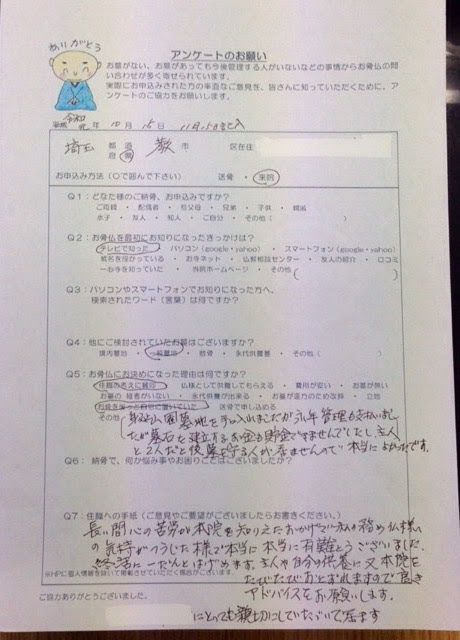 ありがとう
アンケートのお願い
お墓がない、お墓があっても今後管理する人がいないなどの事情からお骨仏の問
い合わせが多く寄せられています。
実際にお申込みされた方の率直なご意見を、皆さんに知っていただくために、ア
ンケートのご協力をお願いします。
令和
平成 元 年 10 月 15 日 11月15日記入
埼玉 都 道 府 県 蕨 市 区在住
お申込み方法(○で囲んで下さい) 送骨 ・ 来院
Q1:どなた様のご納骨、お申込みですか?
ご両親 ・ 配偶者 ・ 祖父母 ・ 兄弟 ・ 子供 ・ 親戚
水子 ・ 友人 ・ 知人 ・ ご自分 ・ その他( )
Q2:お骨仏を最初にお知りになったきっかけは?
テレビで知った ・ パソコン(google・yahoo) ・ スマートフォン(google・yahoo)
戒名を授かっている ・ お寺ネット ・ 仏教相談センター ・ 友人の紹介 ・ 口コミ
一心寺を知っていた ・ 当院ホームページ ・ その他( )
Q3:パソコンやスマートフォンでお知りになった方へ。
検索されたワード(言葉)は何ですか?
Q4:他にご検討されていたお墓はございますか?
境内墓地 ・ 一般墓地 ・ 散骨 ・ 永代供養墓 ・ その他( )
Q5:お骨仏にお決めになった理由は何ですか?
住職の考えに賛同 ・ 仏様として供養してもらえる ・ 費用が安い ・ お墓が無い
お墓の継者がいない ・ 永代供養が出来る ・ お墓が遠方のため改葬 ・ 立地
お骨をずっと自宅に置いていた ・ 送骨で申し込める
その他 公園墓地を手に入れましたが永年管理も支払いまし
たが墓石を建立するお金も貯金できませんでしたし、主人
と2人だと後墓を守る人が居ませんので本当によかったです。
Q6:納骨で、何か悩み事やお困りごとはございましたか?
Q7:住職への手紙(ご意見やご要望がございましたらお書きください。)
長い間心の苦労が本院を知りえたおかげで 務め仏様
の気持が つうじた様で本当に本当に有難とうございました。
終活に一だんとはげめます。主人や自分の供養に又本院を
たびたびおとずれますので良き
アドバイスをお願いします。
※HPに個人情報を除いて掲載させていただく場合がございます。
ご協力ありがとうございました。
にとっても親切にしていただいて居ます